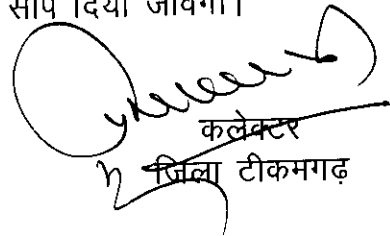 सौंप दिया जावेगा।
कलेक्टर
जिला टीकमगढ़